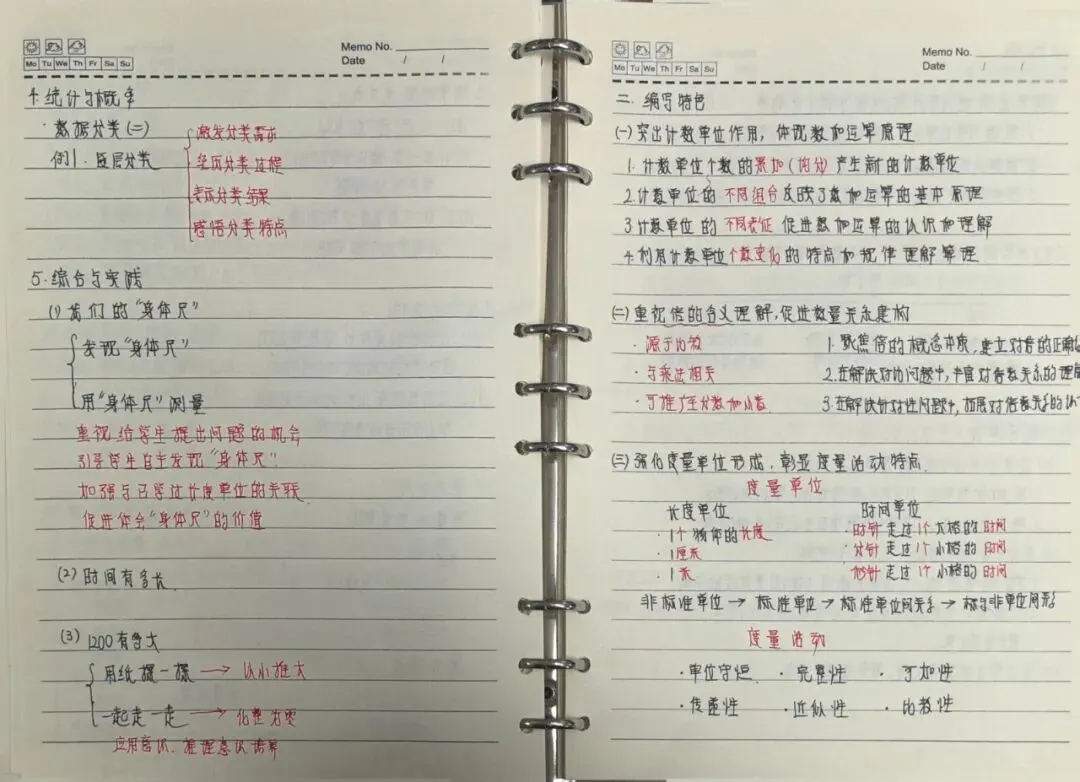 Memo No.
Mo Tu We Th Fr Sa Su
Date / /
4.统计与概率
·数据分类(二)
激发分类需求
例1.逐层分类
经历分类过程
表示分类结果
感悟分类特点
5.综合与实践
(1)我们的“身体尺”
发现“身体尺”
用“身体尺”测量
重视给学生提出问题的机会
引导学生自主发现“身体尺”
加强与已学过长度单位的关联
促进体会“身体尺”的价值
(2)时间有多长
(3)1200有多大
用纸摞一摞→以小推大
一起走一走→化整为零
应用意识、推理意识培养
Memo No.
Mo Tu We Th Fr Sa Su
Date / /
二.编写特色
(一)突出计数单位作用,体现数和运算原理
1.计数单位个数的累加(均分)产生新的计数单位
2.计数单位的不同组合反映了数和运算的基本原理
3.计数单位的不同表征促进数和运算的认识和理解
4.利用计数单位个数变化的特点和规律理解算理
(二)重视倍的含义理解,促进数量关系建构
·源于比较 1.聚焦倍的概念本质,建立对倍的正确
·与乘法相关 2.在解决对比问题中,丰富对倍数关系的理解
·可推广至分数和小数 3.在解决针对性问题中,拓展对倍数关系的认
(三)强化度量单位形成,彰显度量活动特点
度量单位
长度单位 时间单位
·1个物体的长度 ·时针走过1个大格的时间
·1厘米 ·分针走过1个小格的时间
·1米 ·秒针走过1个小格的时间
非标准单位→标准单位→标准单位间关系→标与非单位间关系
度量活动
·单位守恒 ·完整性 ·可加性
·传递性 ·近似性 ·比较性